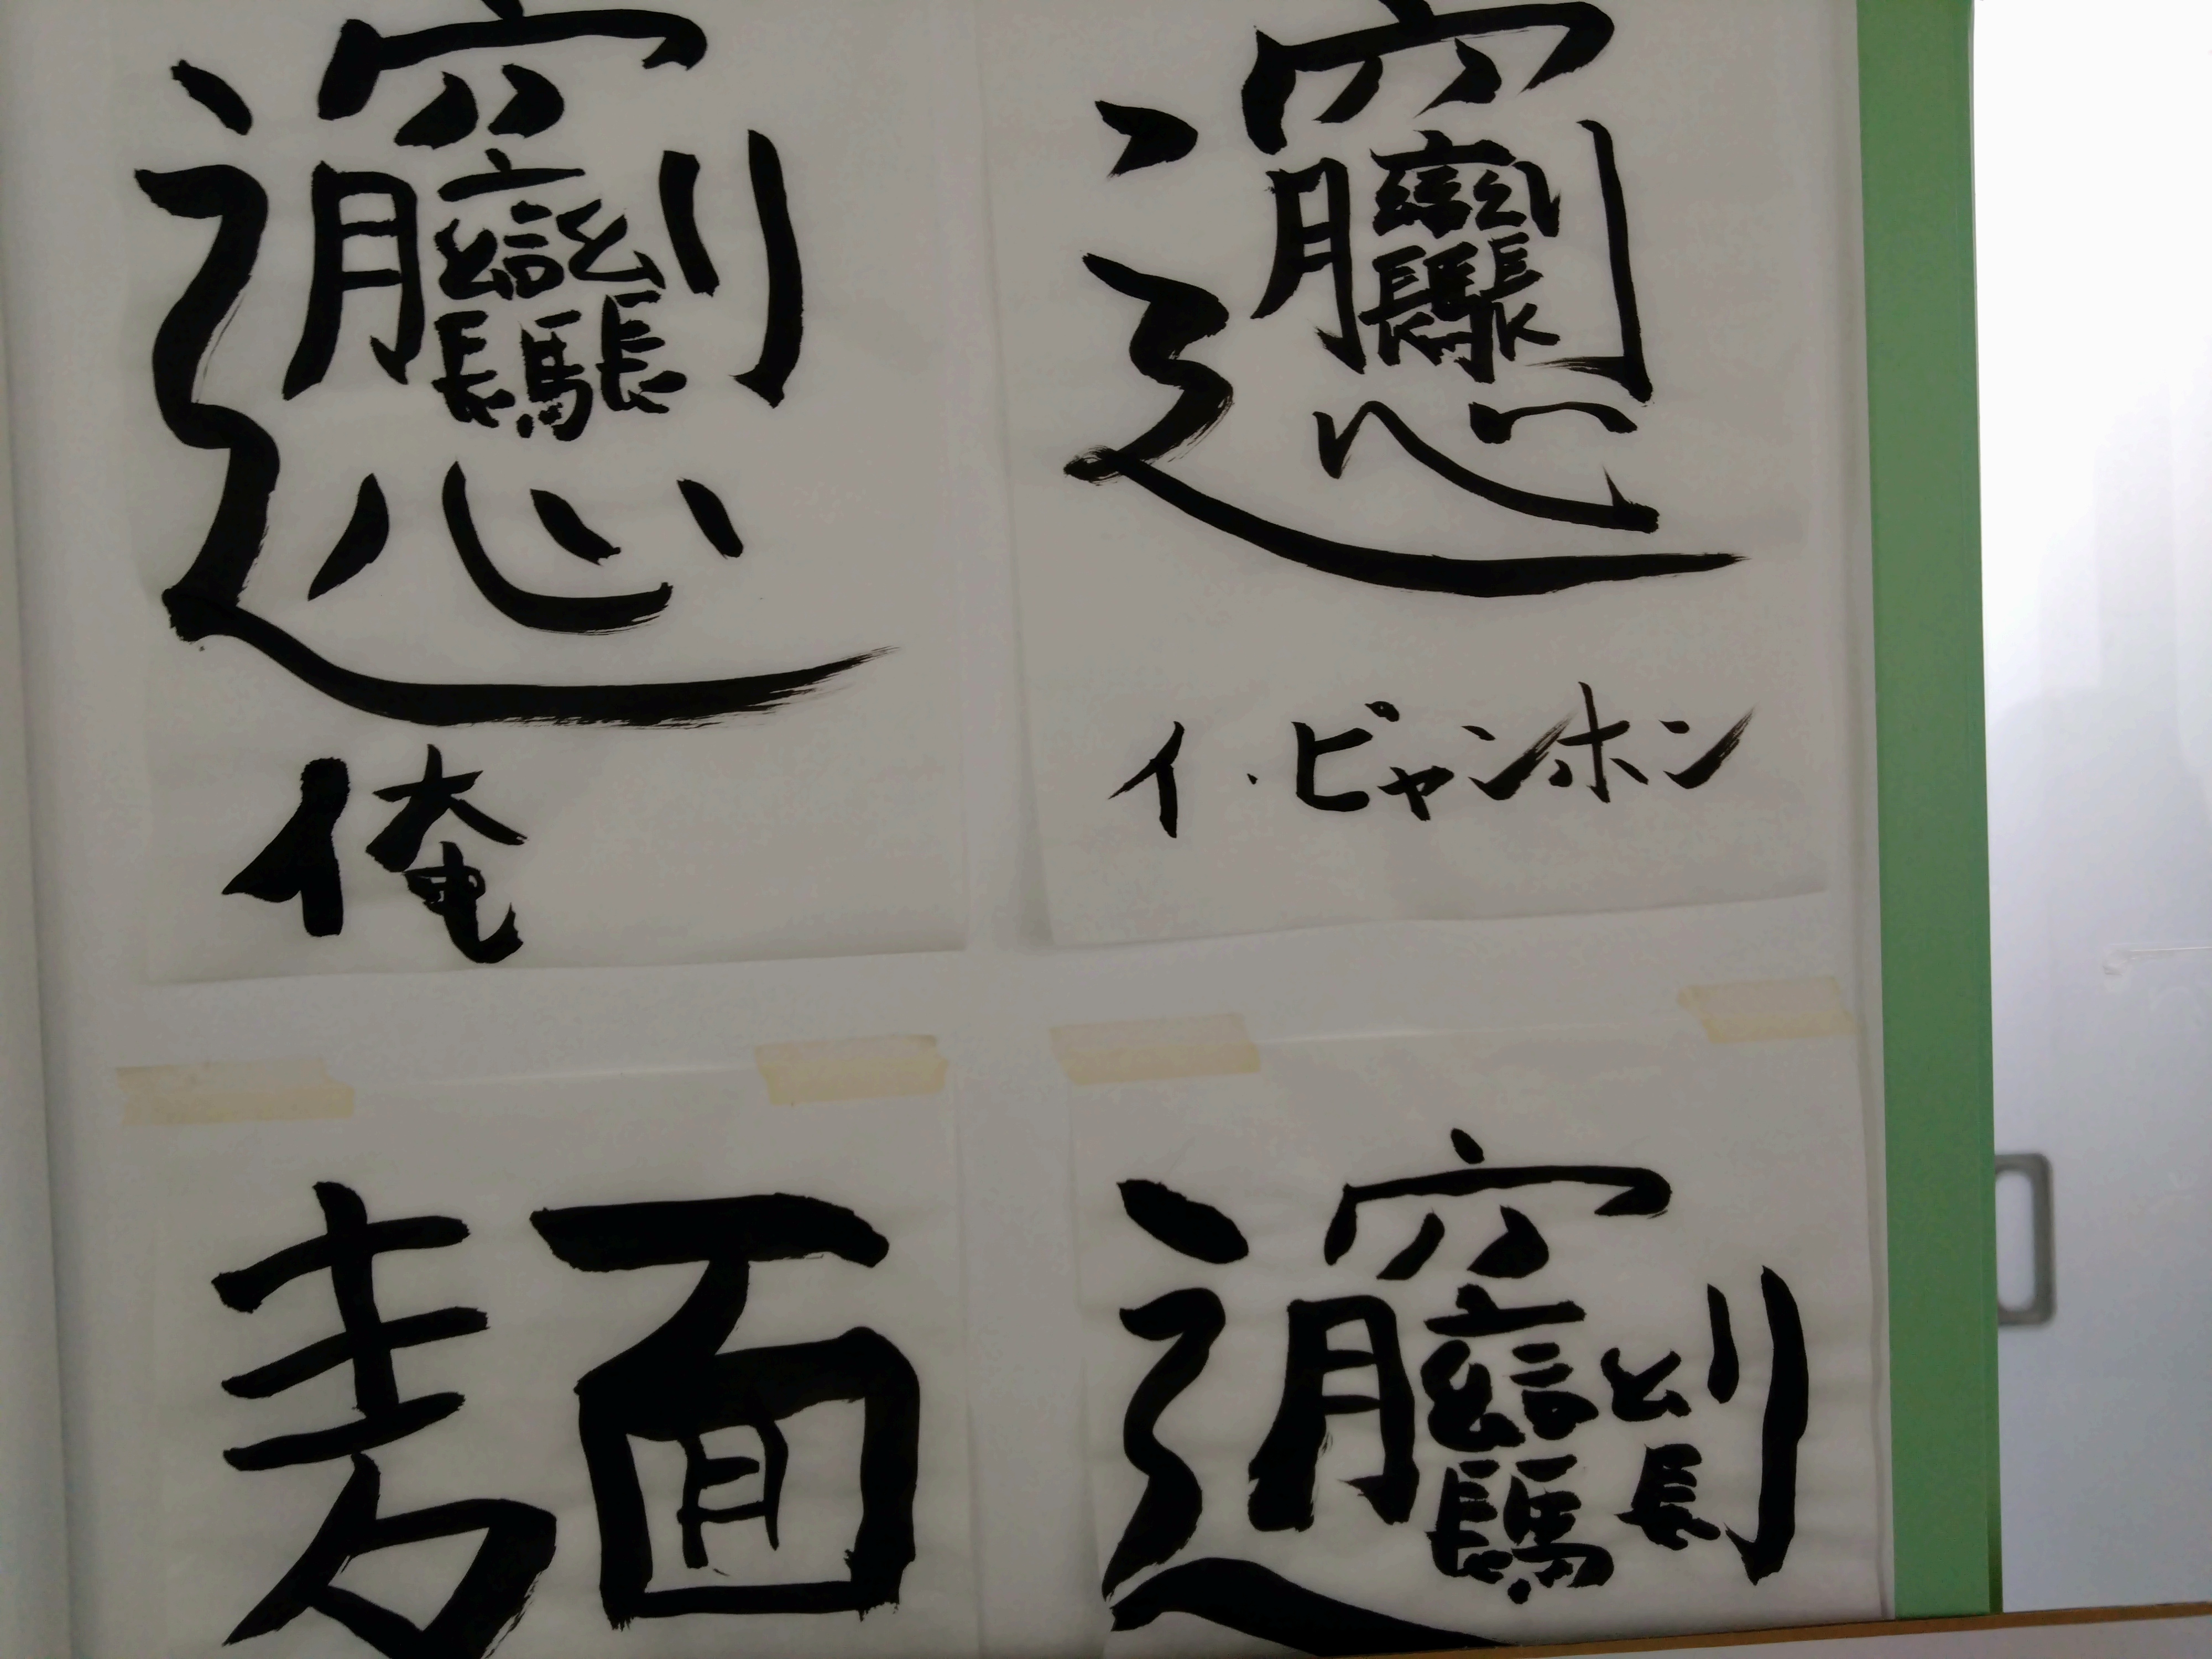 𰻞
イ・ビャンホン
𰻞
俺
𰻞
麺